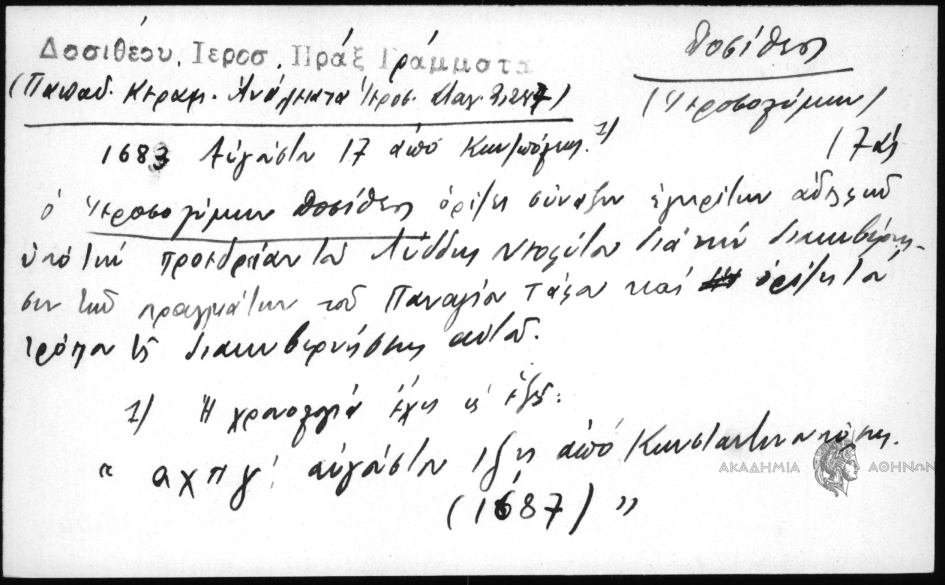 Δοσιθέου, Ιεροσ, Πράξ Γράμματα
Δοσίθεος
(Παπαδ. Κεραμ. Ἀνάλεκτα Ἱεροσ. Σταχ. 2,287)
(Ἱεροσολύμων)
1683 Αὐγούστου 17 ἀπό Κων/πόλεως. 1)
17ος
ὁ Ἱεροσολύμων Δοσίθεος ὁρίζει σύναξιν ἐγκρίτων ἀδελφῶν
ὑπό τήν προεδρείαν τοῦ Λύδδης διά τήν διακυβέρνη-
σιν τῶν πραγμάτων τοῦ Παναγίου Τάφου καί ὁρίζει τόν
τρόπον τῆς διακυβερνήσεως αὐτοῦ.
1) Ἡ χρονολογία ἔχει ὡς ἑξῆς:
" αχπγ' αὐγούστου ιζῃ ἀπό Κωνσταντινουπόλεως.
(1687) "
ΑΚΑΔΗΜΙΑ ΑΘΗΝΩΝ